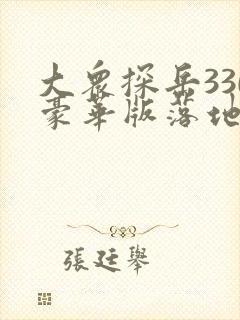 大众探岳330
豪華版落地
張廷舉